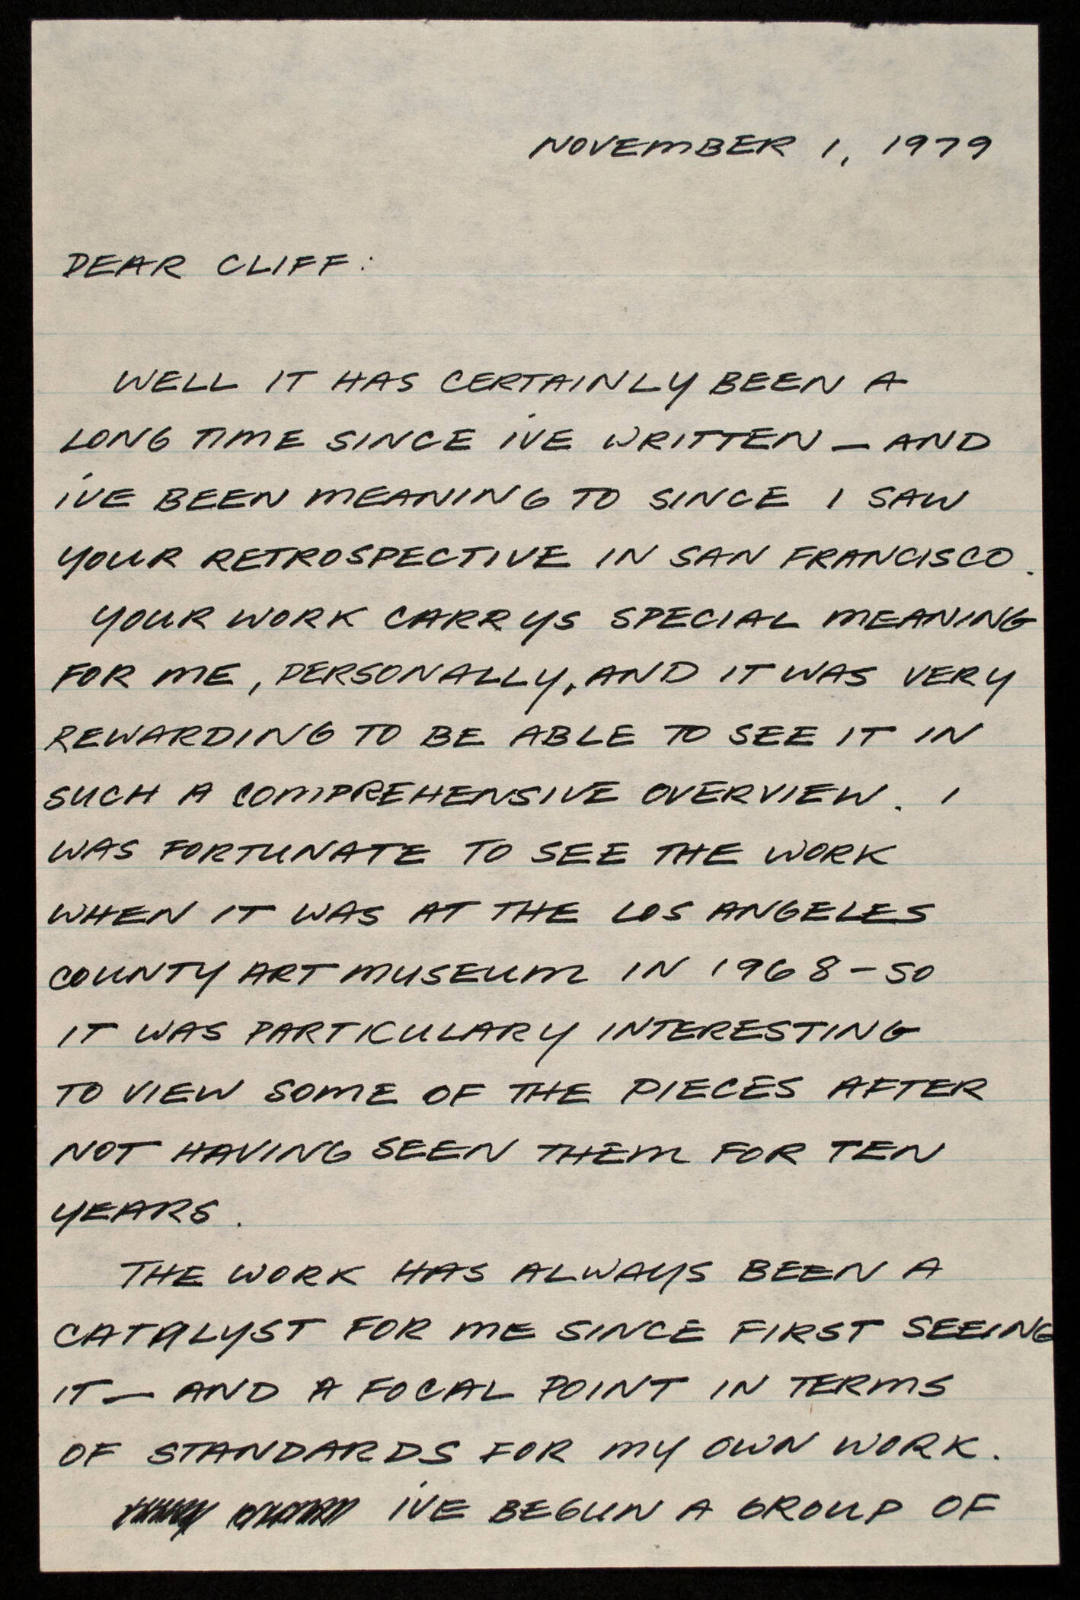 NOVEMBER 1, 1979
DEAR CLIFF:
WELL IT HAS CERTAINLY BEEN A
LONG TIME SINCE IVE WRITTEN — AND
IVE BEEN MEANING TO SINCE I SAW
YOUR RETROSPECTIVE IN SAN FRANCISCO.
YOUR WORK CARRYS SPECIAL MEANING
FOR ME, PERSONALLY, AND IT WAS VERY
REWARDING TO BE ABLE TO SEE IT IN
SUCH A COMPREHENSIVE OVERVIEW. I
WAS FORTUNATE TO SEE THE WORK
WHEN IT WAS AT THE LOS ANGELES
COUNTY ART MUSEUM IN 1968 - SO
IT WAS PARTICULARY INTERESTING
TO VIEW SOME OF THE PIECES AFTER
NOT HAVING SEEN THEM FOR TEN
YEARS.
THE WORK HAS ALWAYS BEEN A
CATALYST FOR ME SINCE FIRST SEEING
IT — AND A FOCAL POINT IN TERMS
OF STANDARDS FOR MY OWN WORK.
IVE BEGUN A GROUP OF